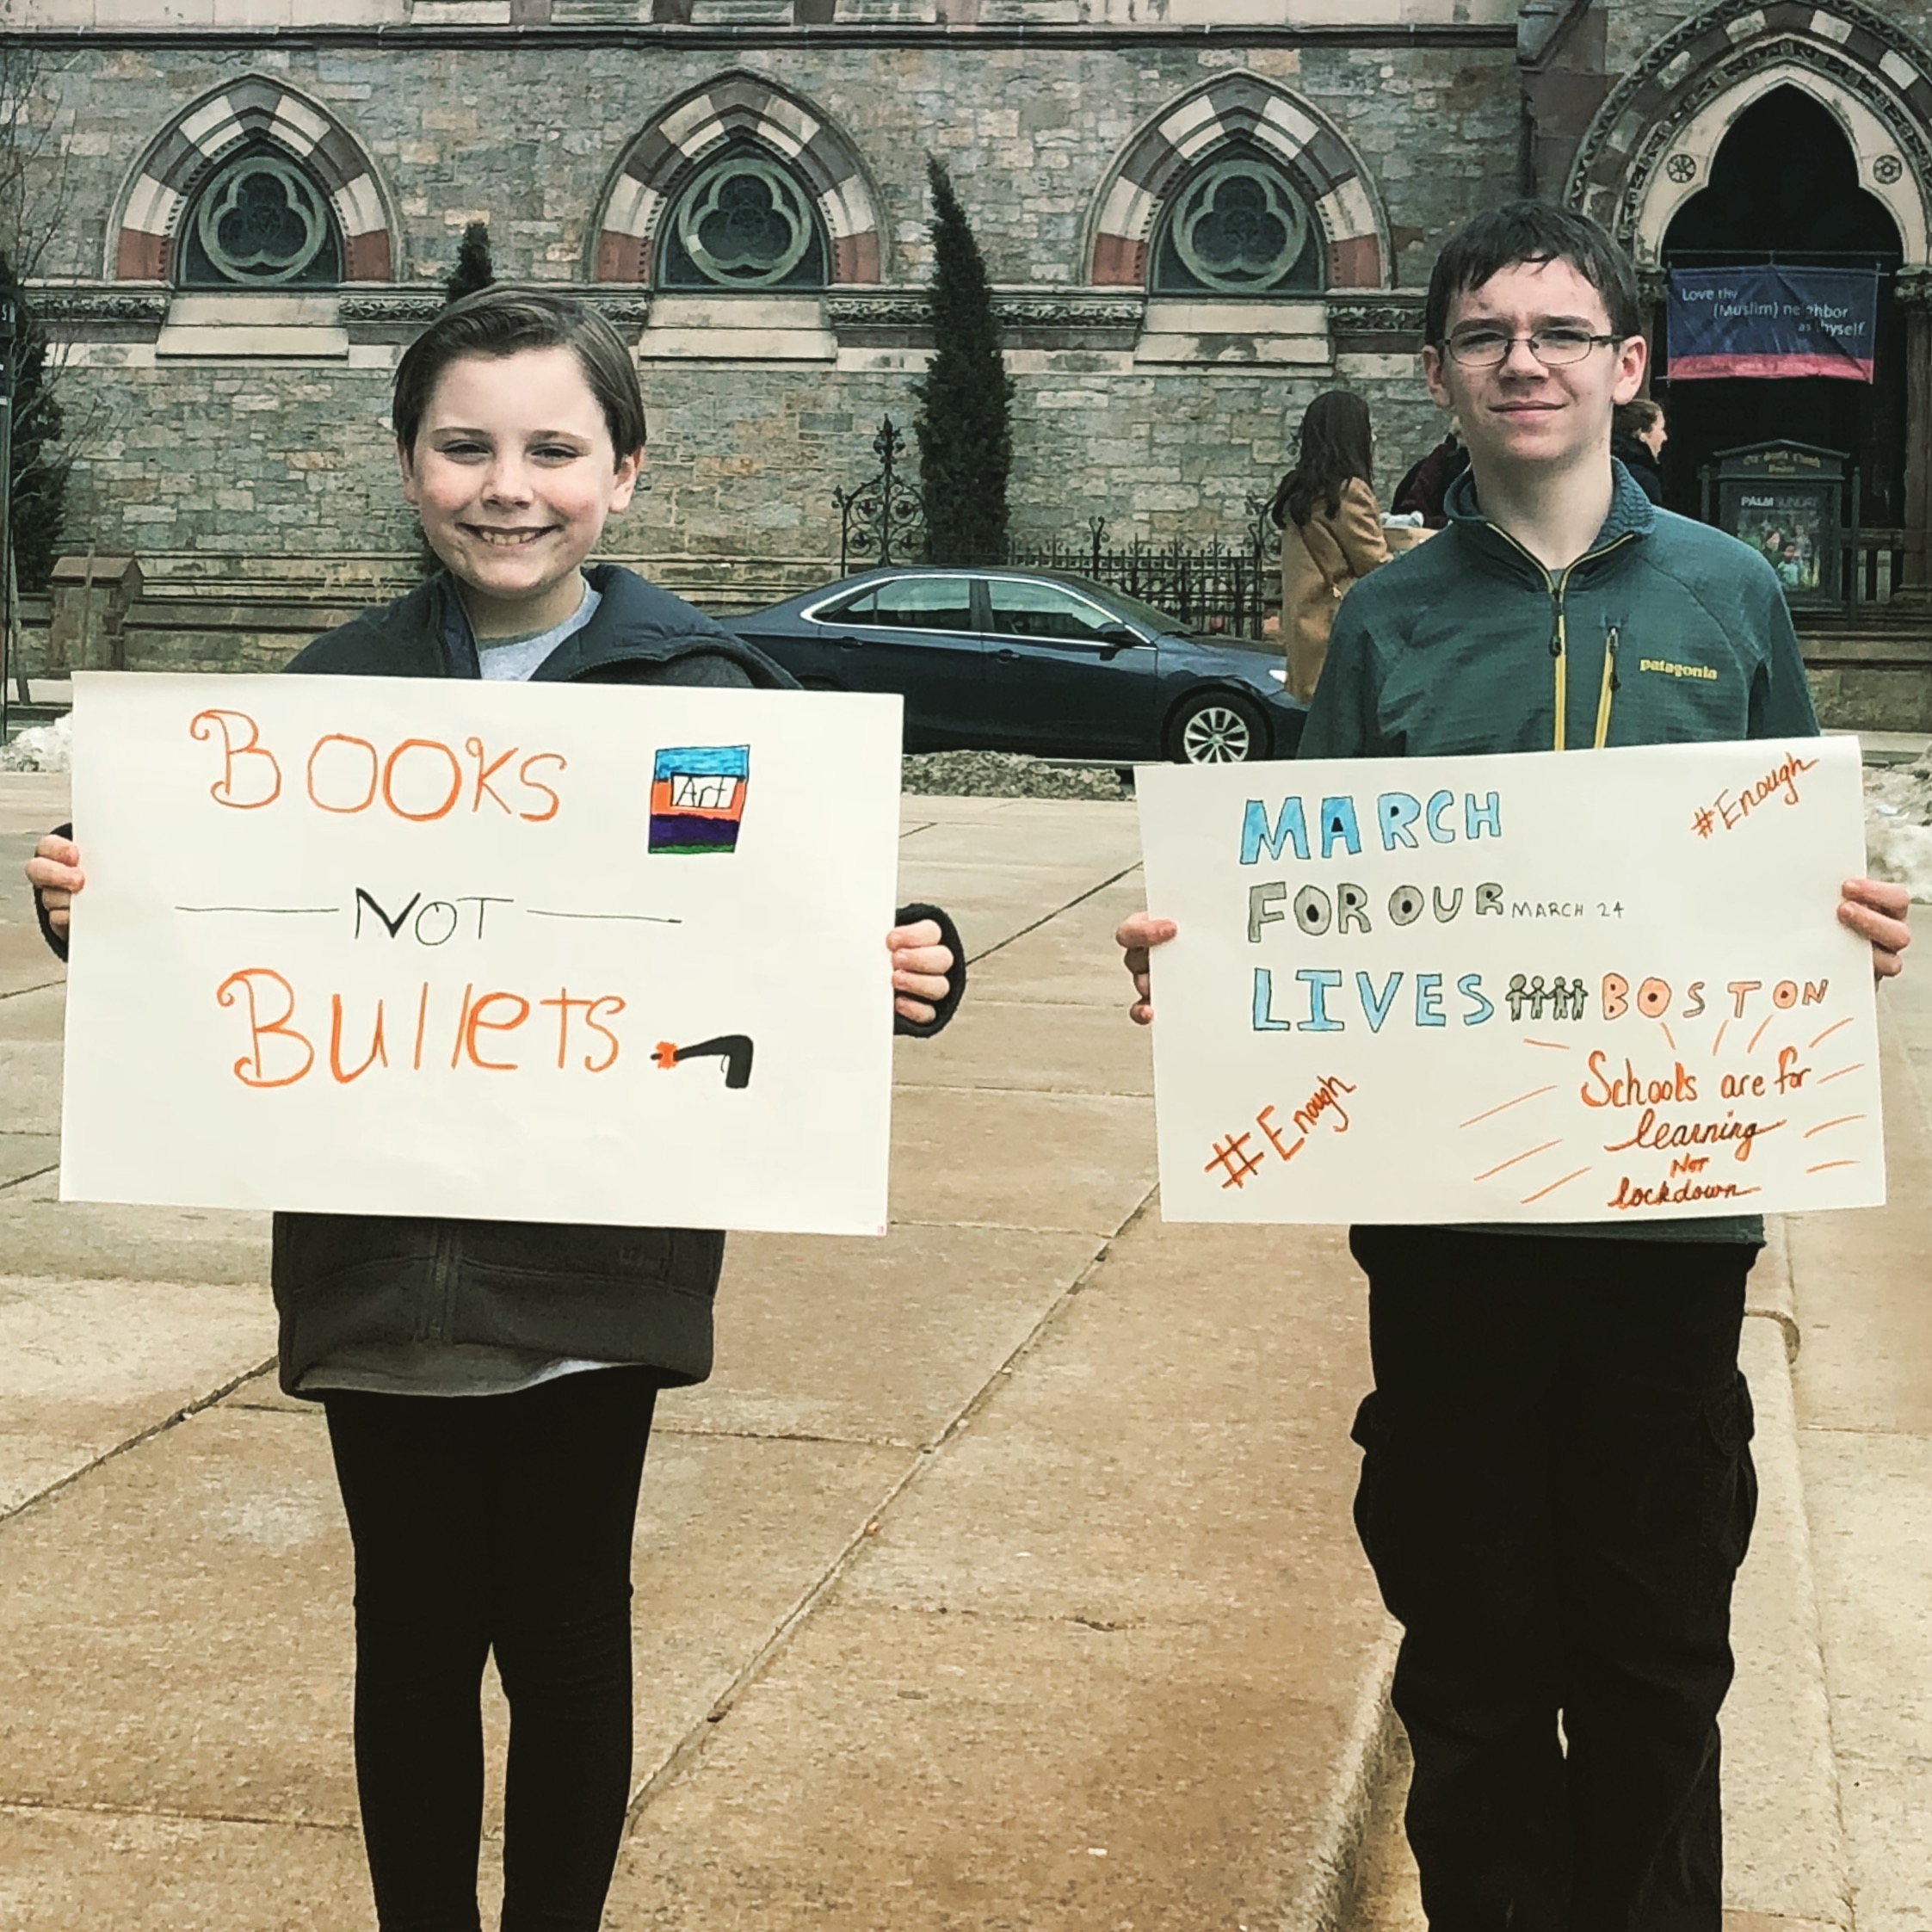 BOOKS
Art
NOT
Bullets
MARCH
#Enough
FOR OUR MARCH 24
LIVES BOSTON
Schools are for
learning
NOT
lockdown
#Enough
patagonia
Love thy
(Muslim) neighbor
as thyself.
Old South Church
Boston
PALM SUNDAY